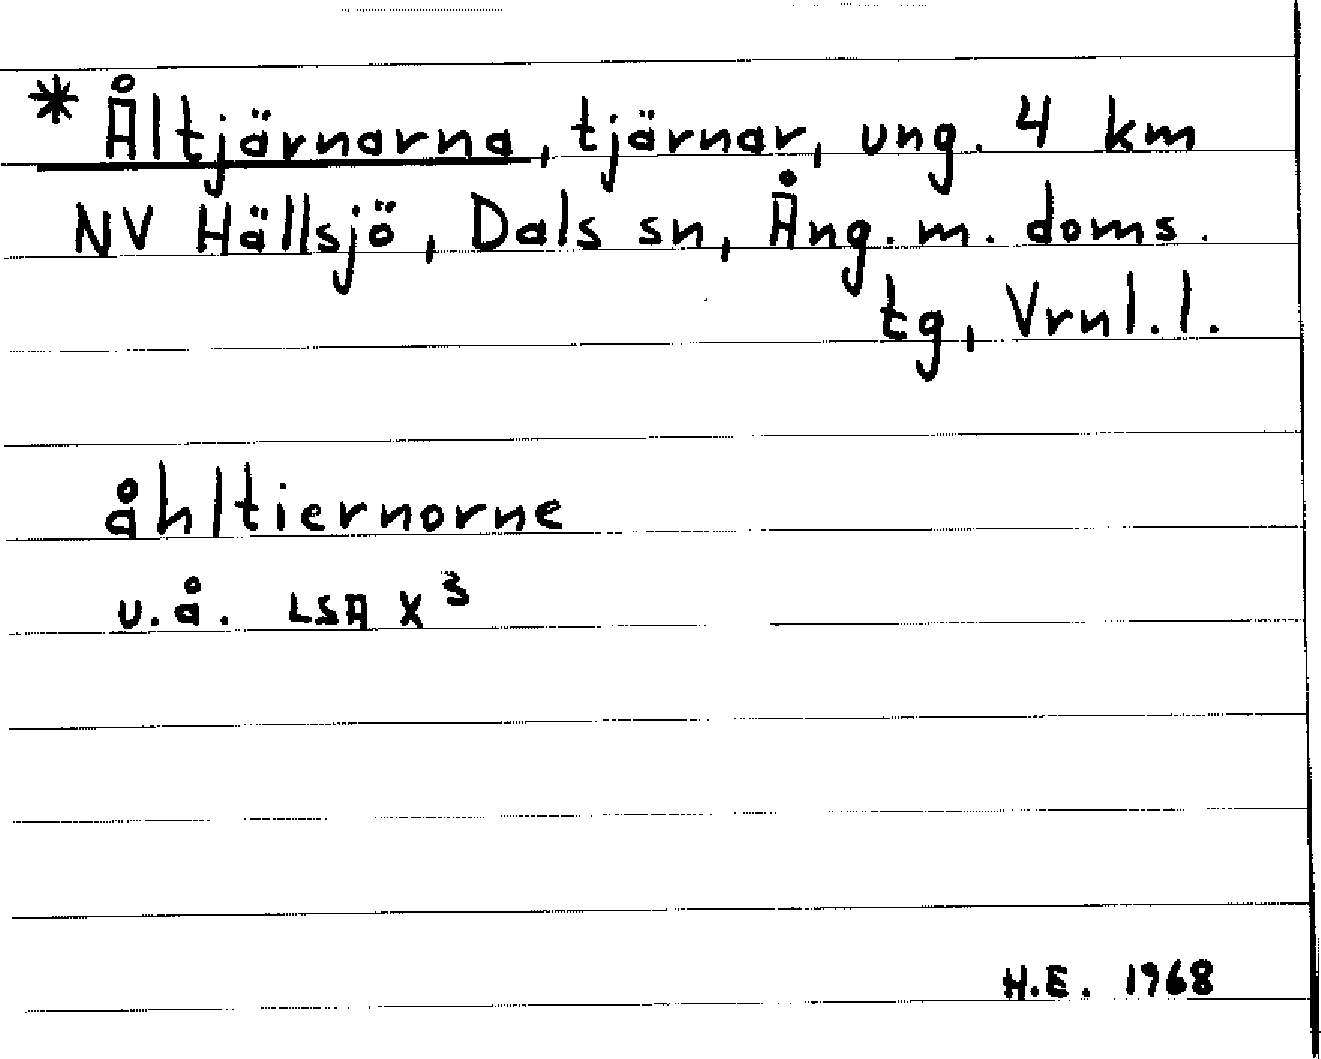 * Åltjärnarna, tjärnar, ung. 4 km
NV Hällsjö, Dals sn, Ång. m. doms.
tg, Vrnl. l.
åhltiernorne
u.å. LSA X³
H.E. 1968